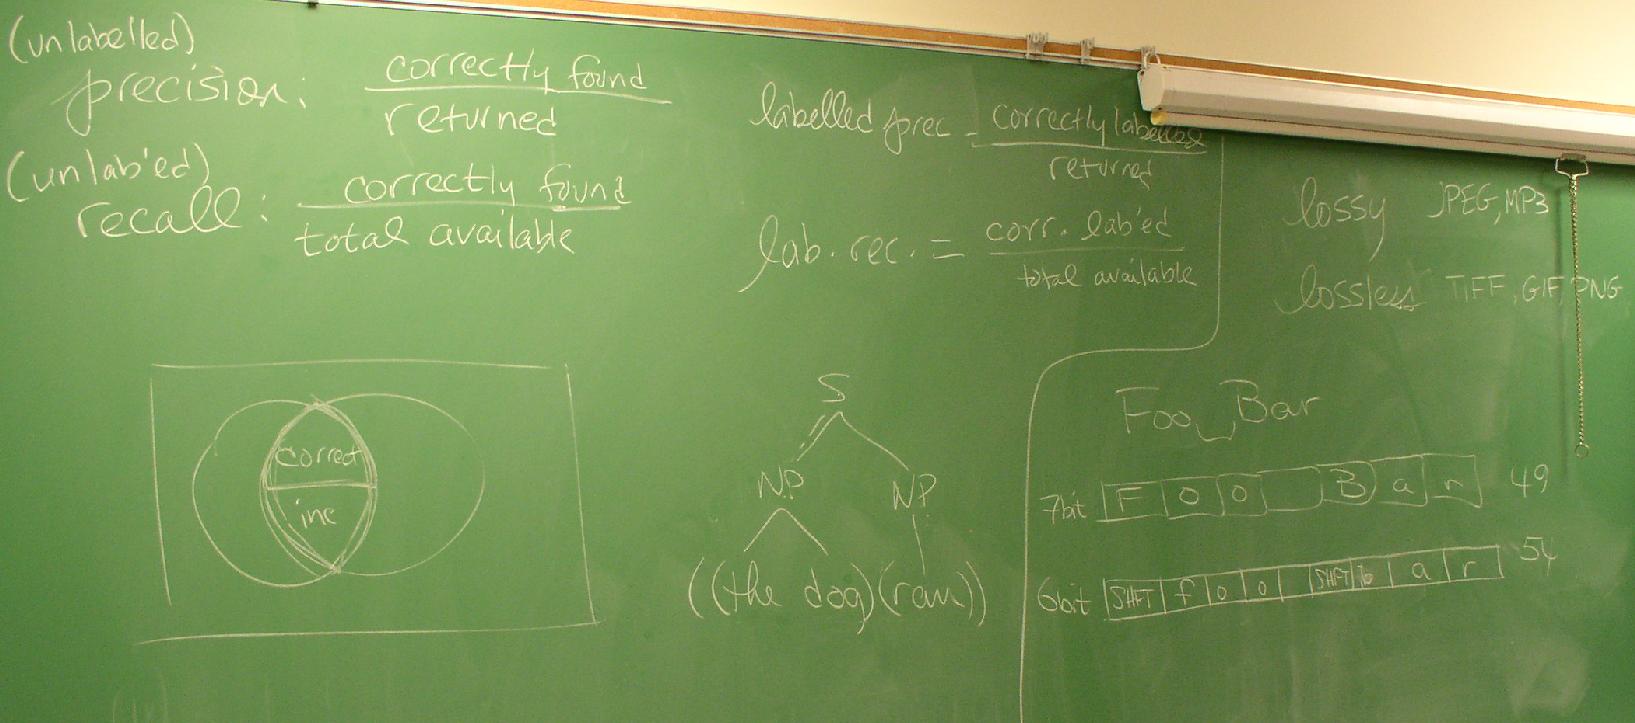 (unlabelled)
precision: correctly found
returned
(unlab'ed)
recall: correctly found
total available
labelled prec = correctly labelled
returned
lab. rec. = corr. lab'ed
total available
lossy JPEG, MP3
lossless TIFF, GIF, PNG
correct
inc
S
NP NP
((the dog)(ran))
Foo␣Bar
7bit F o o B a r 49
6bit SHFT f o o SHFT b a r 54